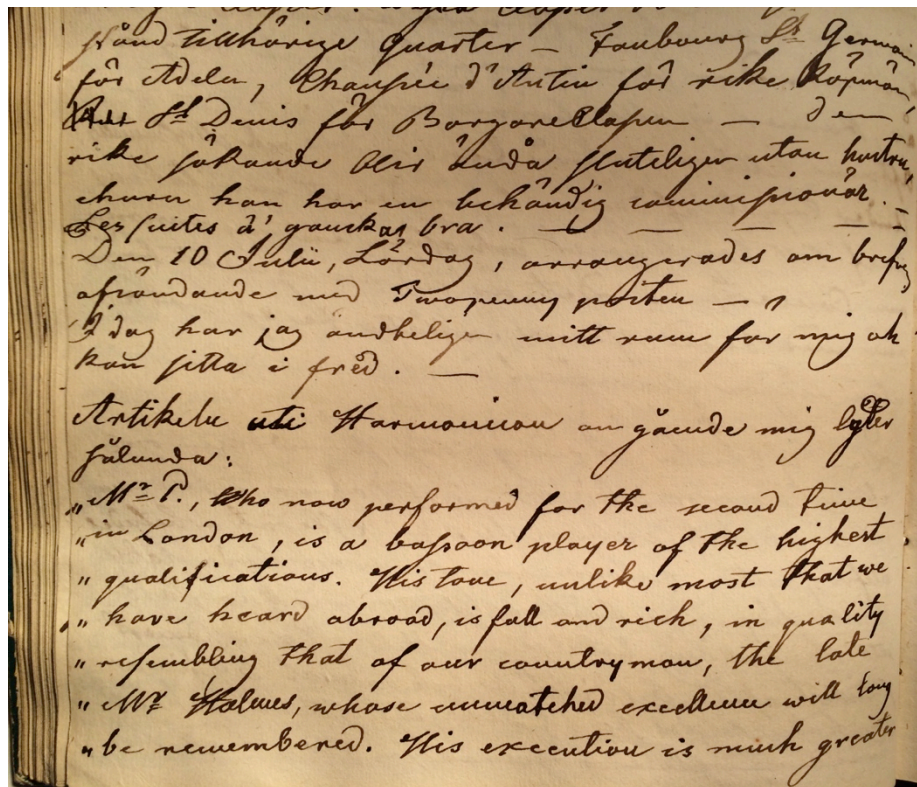 stånd tillhörige quarter — Faubourg St Germain
för Adeln, Chaussée d'Antin för rike köpmän,
St Denis för Borgareklassen — den
rike sökande blir ändå sluteligen utan hustru,
churu han har en behändig commissionär. —
Les suites à, ganska bra. — — — —
Den 10 Julii, Lördag, arrangerades om brefvens
afsändande med Twopenny posten —
I dag har jag ändteligen mitt rum för mig och
kan sitta i fred. —
Artikeln uti Harmonicon angående mig lyder
sålunda:
„Mr P., Who now performed for the second time
„in London, is a bassoon player of the highest
„qualifications. His tone, unlike most that we
„have heard abroad, is full and rich, in quality
„resembling that of our countryman, the late
„Mr Holmes, whose unmatched excellence will long
„be remembered. His execution is much greater